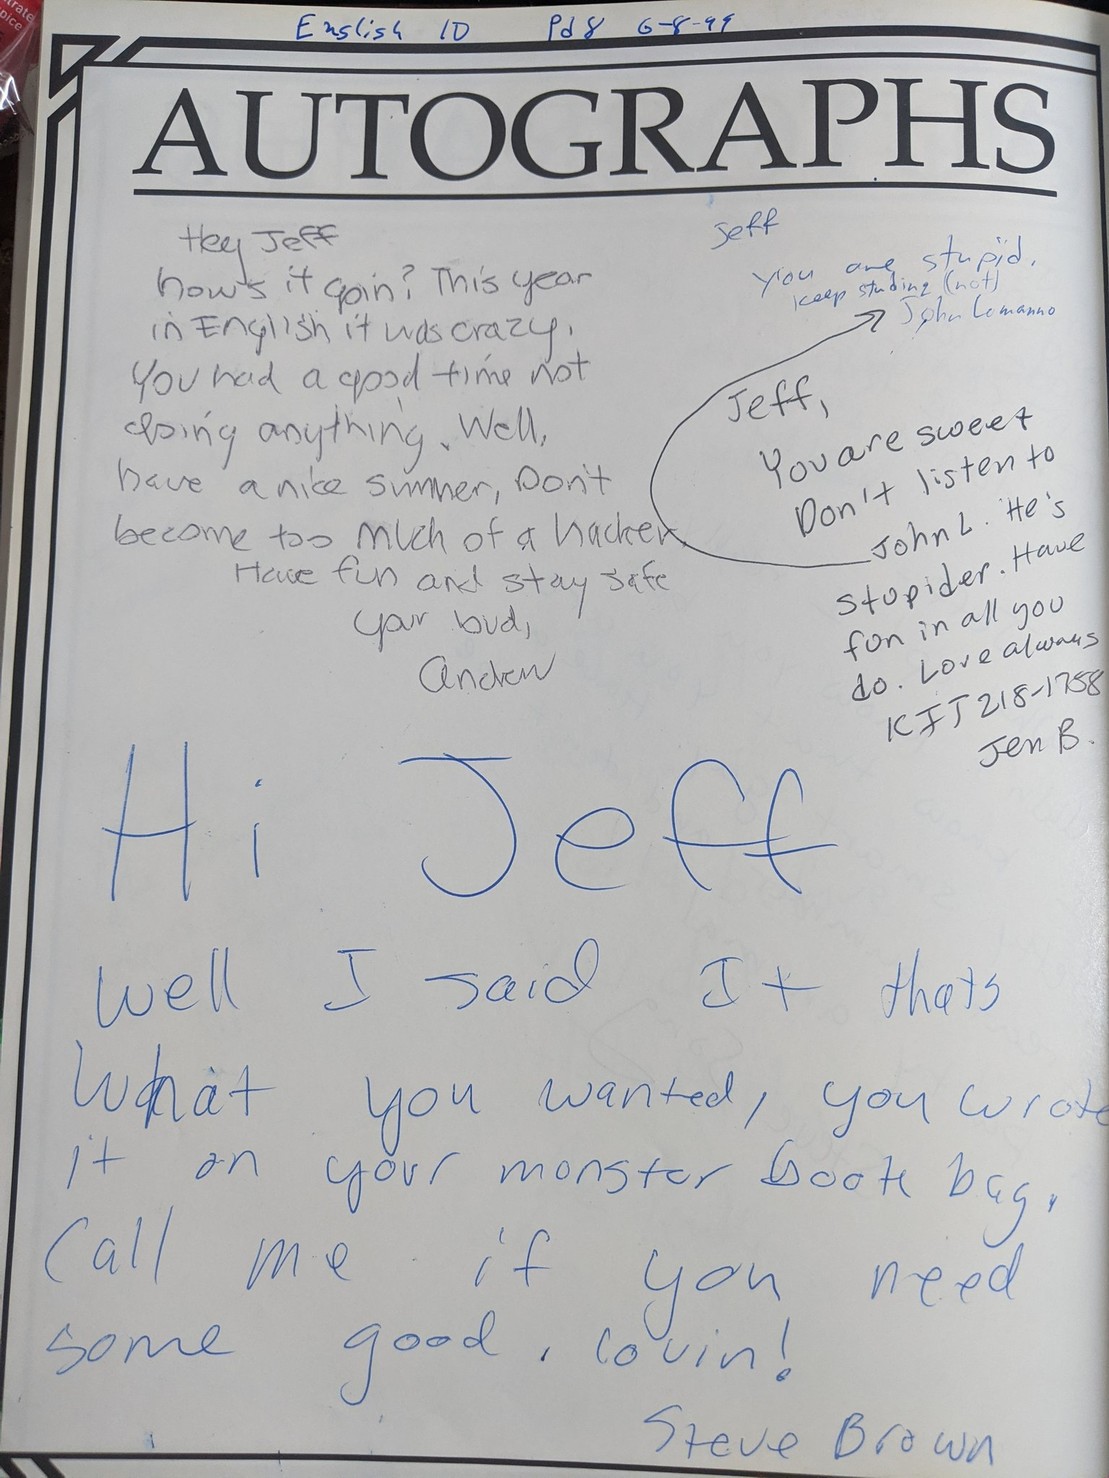 English 10 Pd 8 6-8-99
AUTOGRAPHS
Hey Jeff
how's it goin? This year
in English it was crazy.
You had a good time not
doing anything. Well,
have a nice summer, Don't
become too much of a hacker.
Have fun and stay safe
your bud,
Andrew
Jeff
you are stupid.
keep studing (not)
John Lomanno
Jeff,
You are sweet
Don't listen to
John L. He's
stupider. Have
fun in all you
do. Love always
KIT 218-1758
Jen B.
Hi Jeff
Well I said It thats
What you wanted, you wrote
it on your monster book bag.
Call me if you need
some good, lovin!
Steve Brown